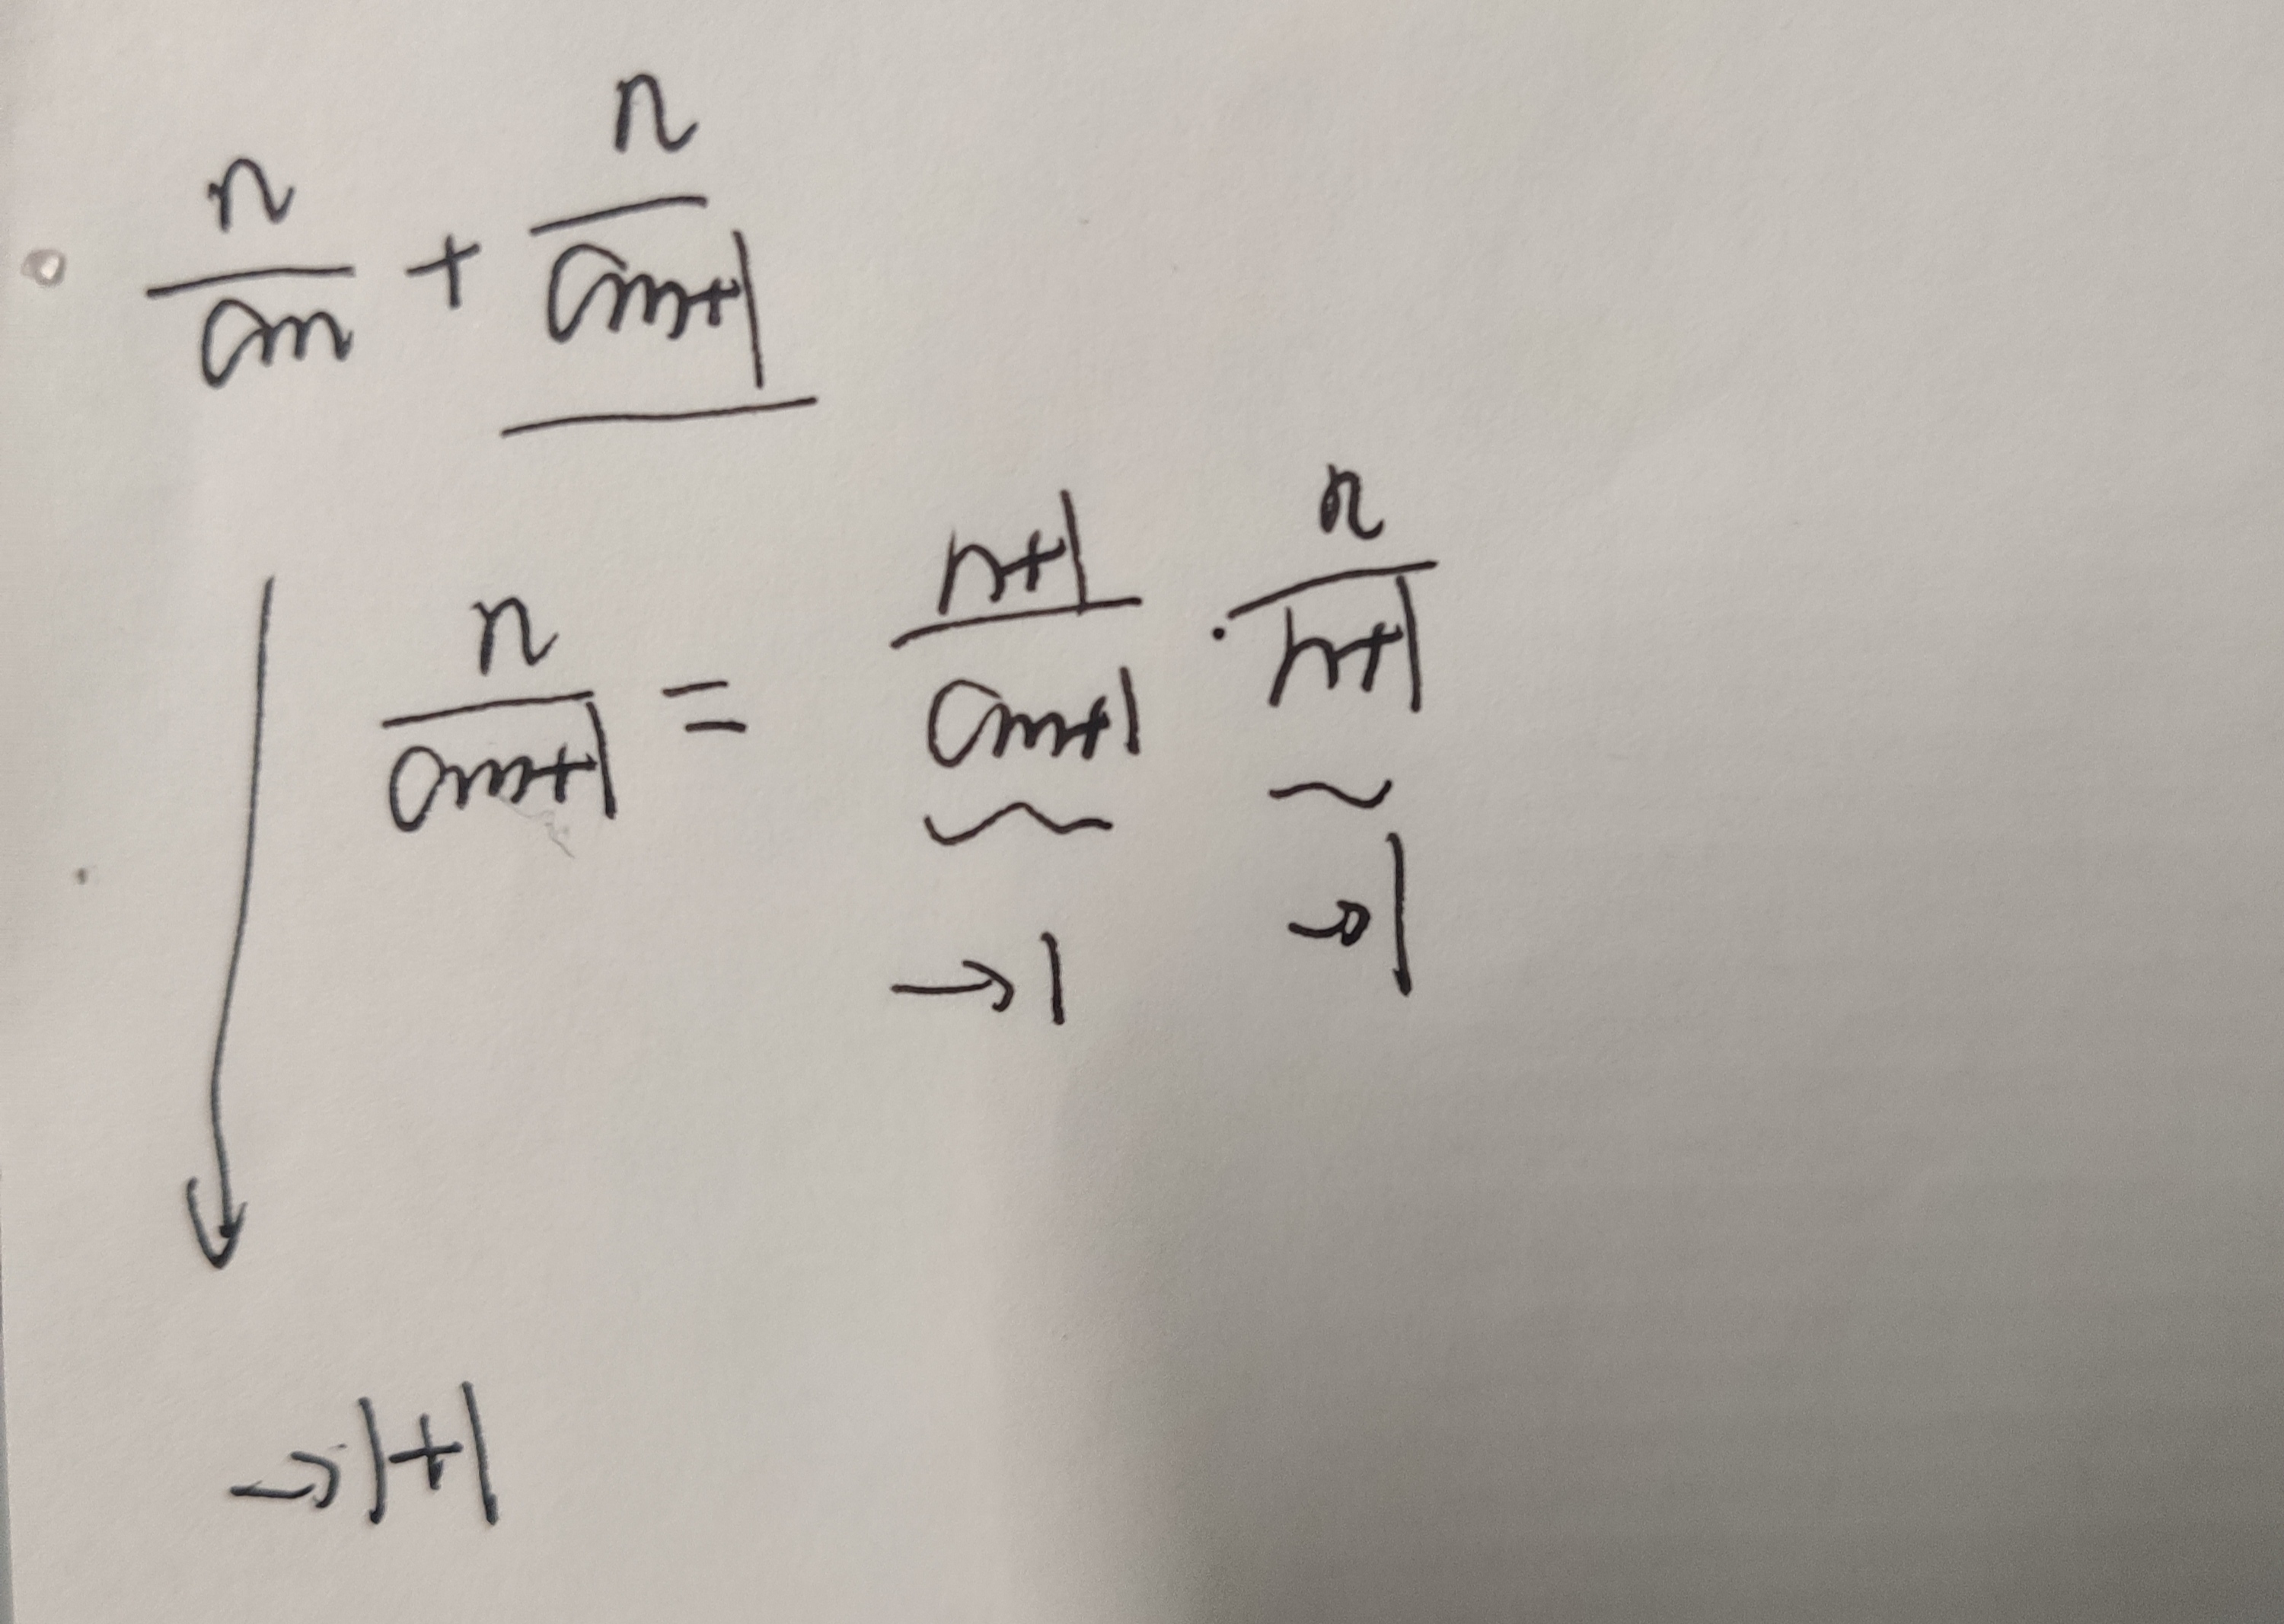 n/an + n/an+1
n/an+1 = n+1/an+1 · n/n+1
→1 →1
→1+1